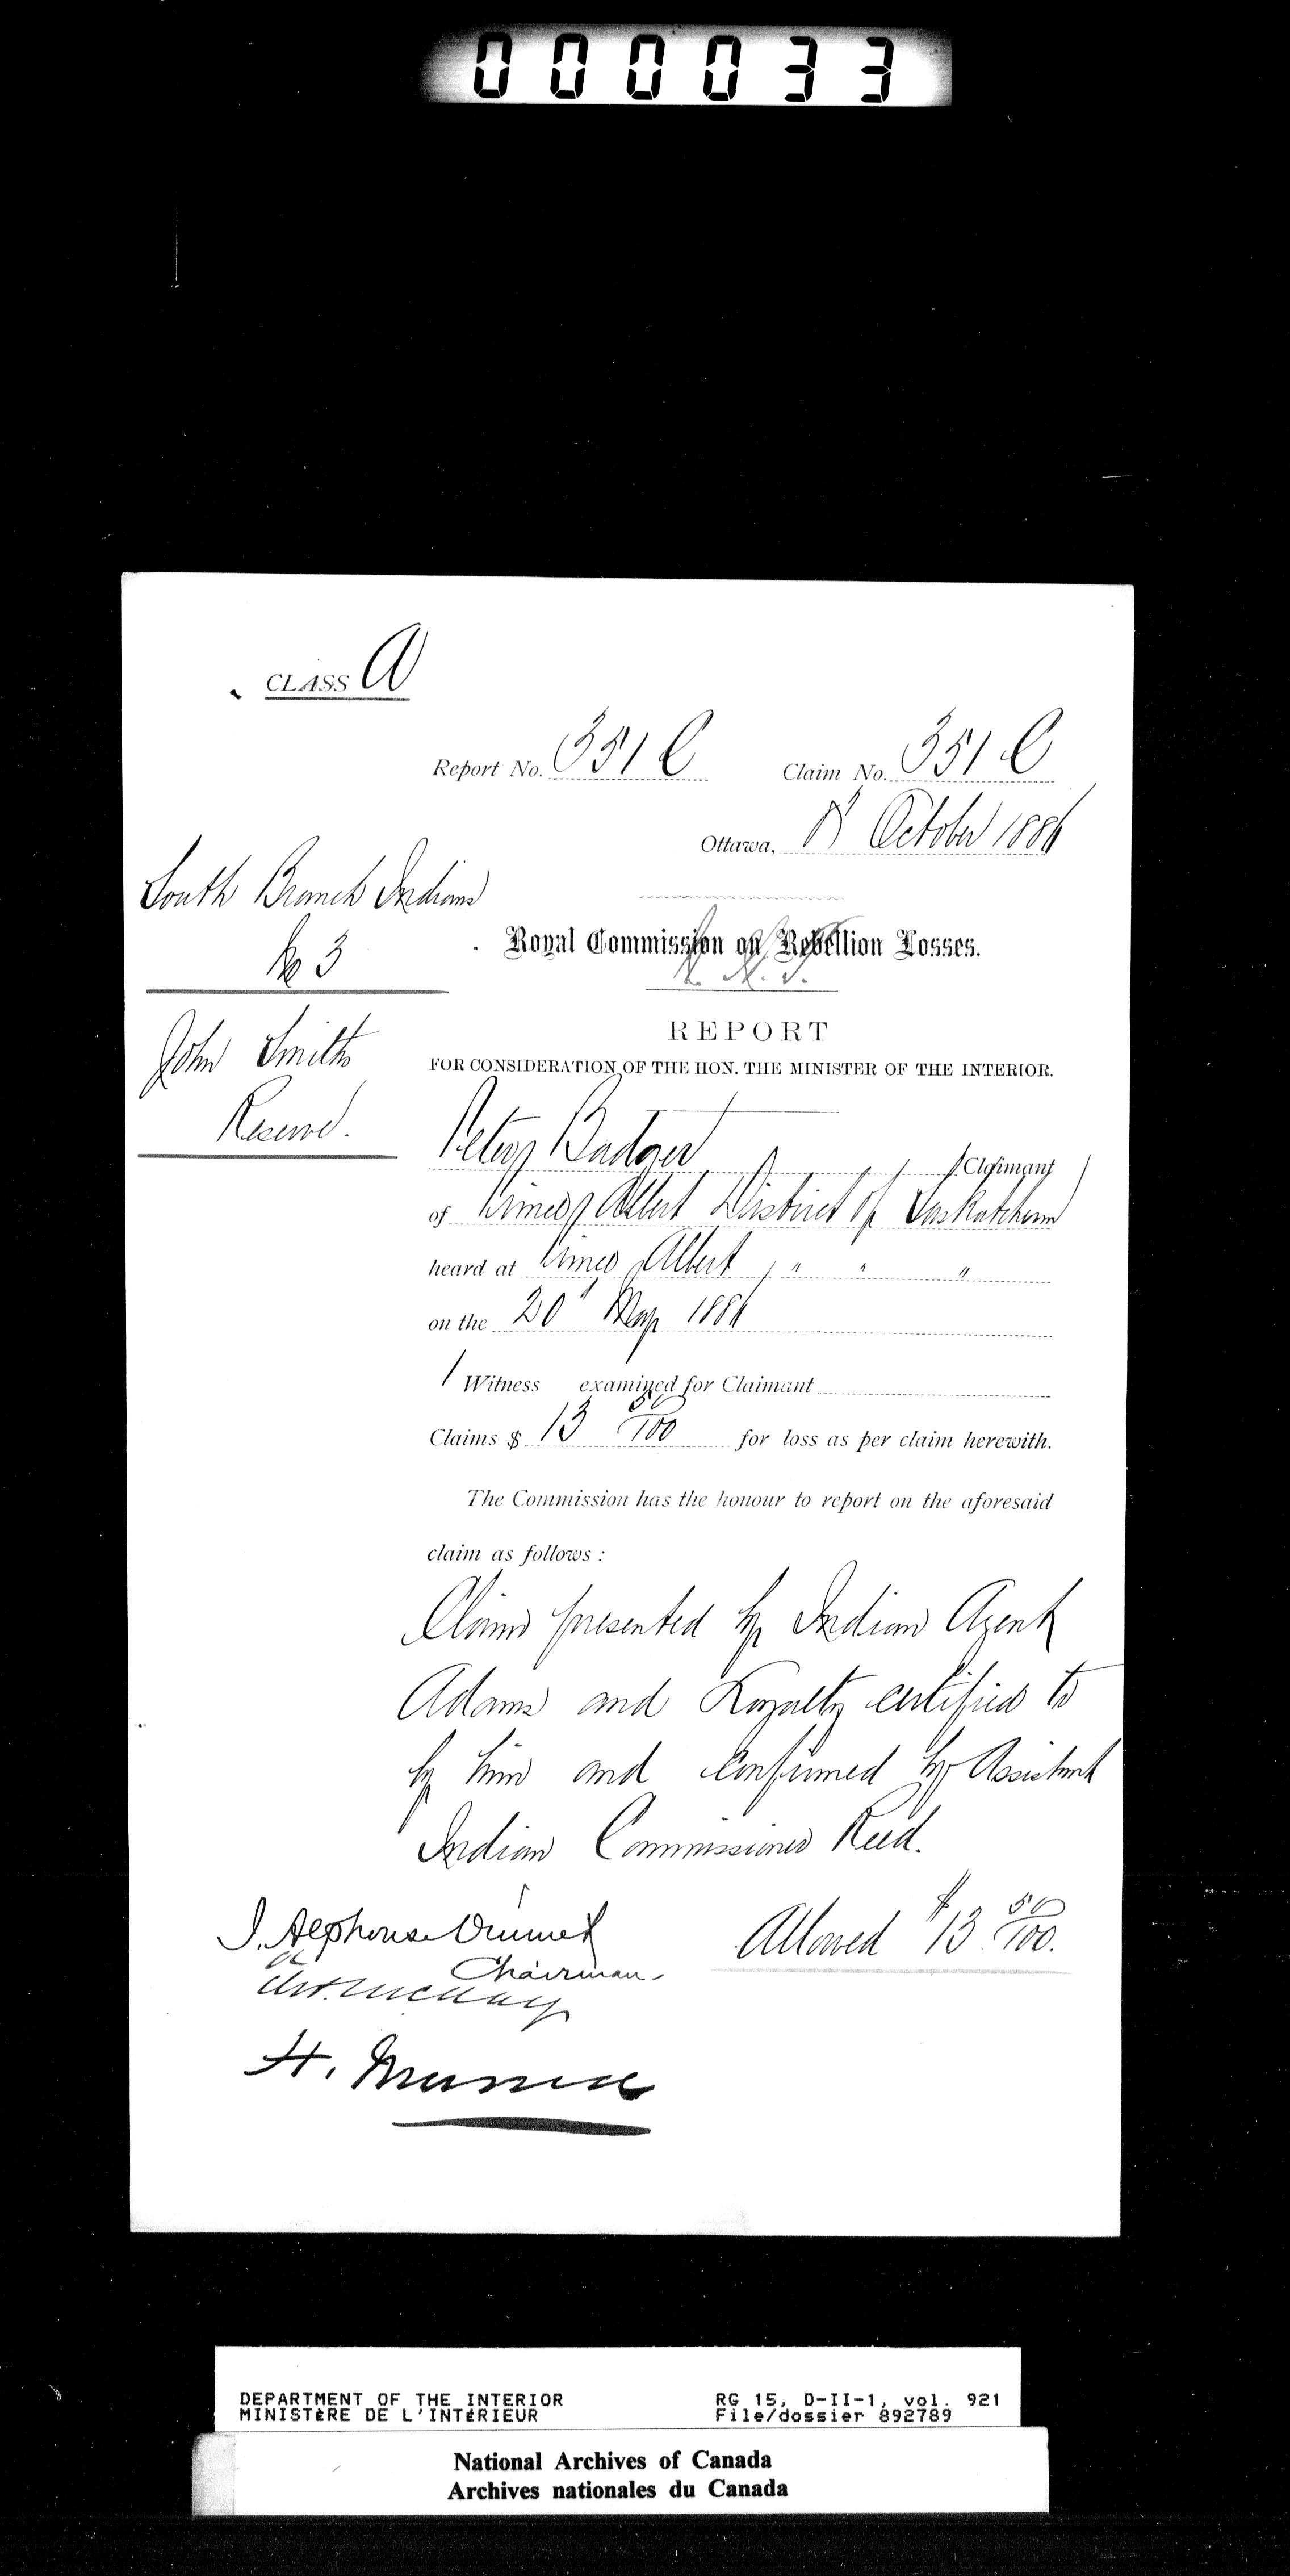 000033
CLASS A
Report No. 351 C Claim No. 351 C
Ottawa, 8th October 1886
South Branch Indians
No 3
Royal Commission on Rebellion Losses.
John Smiths
Reserve.
REPORT
FOR CONSIDERATION OF THE HON. THE MINISTER OF THE INTERIOR.
Peter Badger Claimant
of Prince Albert District of Saskatchewan
heard at Prince Albert, " " "
on the 20th May 1886
1 Witness examined for Claimant
Claims $ 13 50/100 for loss as per claim herewith.
The Commission has the honour to report on the aforesaid
claim as follows:
Claim presented by Indian Agent
Adams and Loyalty certified to
by him and confirmed by Assistant
Indian Commissioner Reed.
Allowed $13 50/100.
J. Alphonse Ouimet
Chairman
H. Muma
DEPARTMENT OF THE INTERIOR RG 15, D-II-1, vol. 921
MINISTÈRE DE L'INTÉRIEUR File/dossier 892789
National Archives of Canada
Archives nationales du Canada